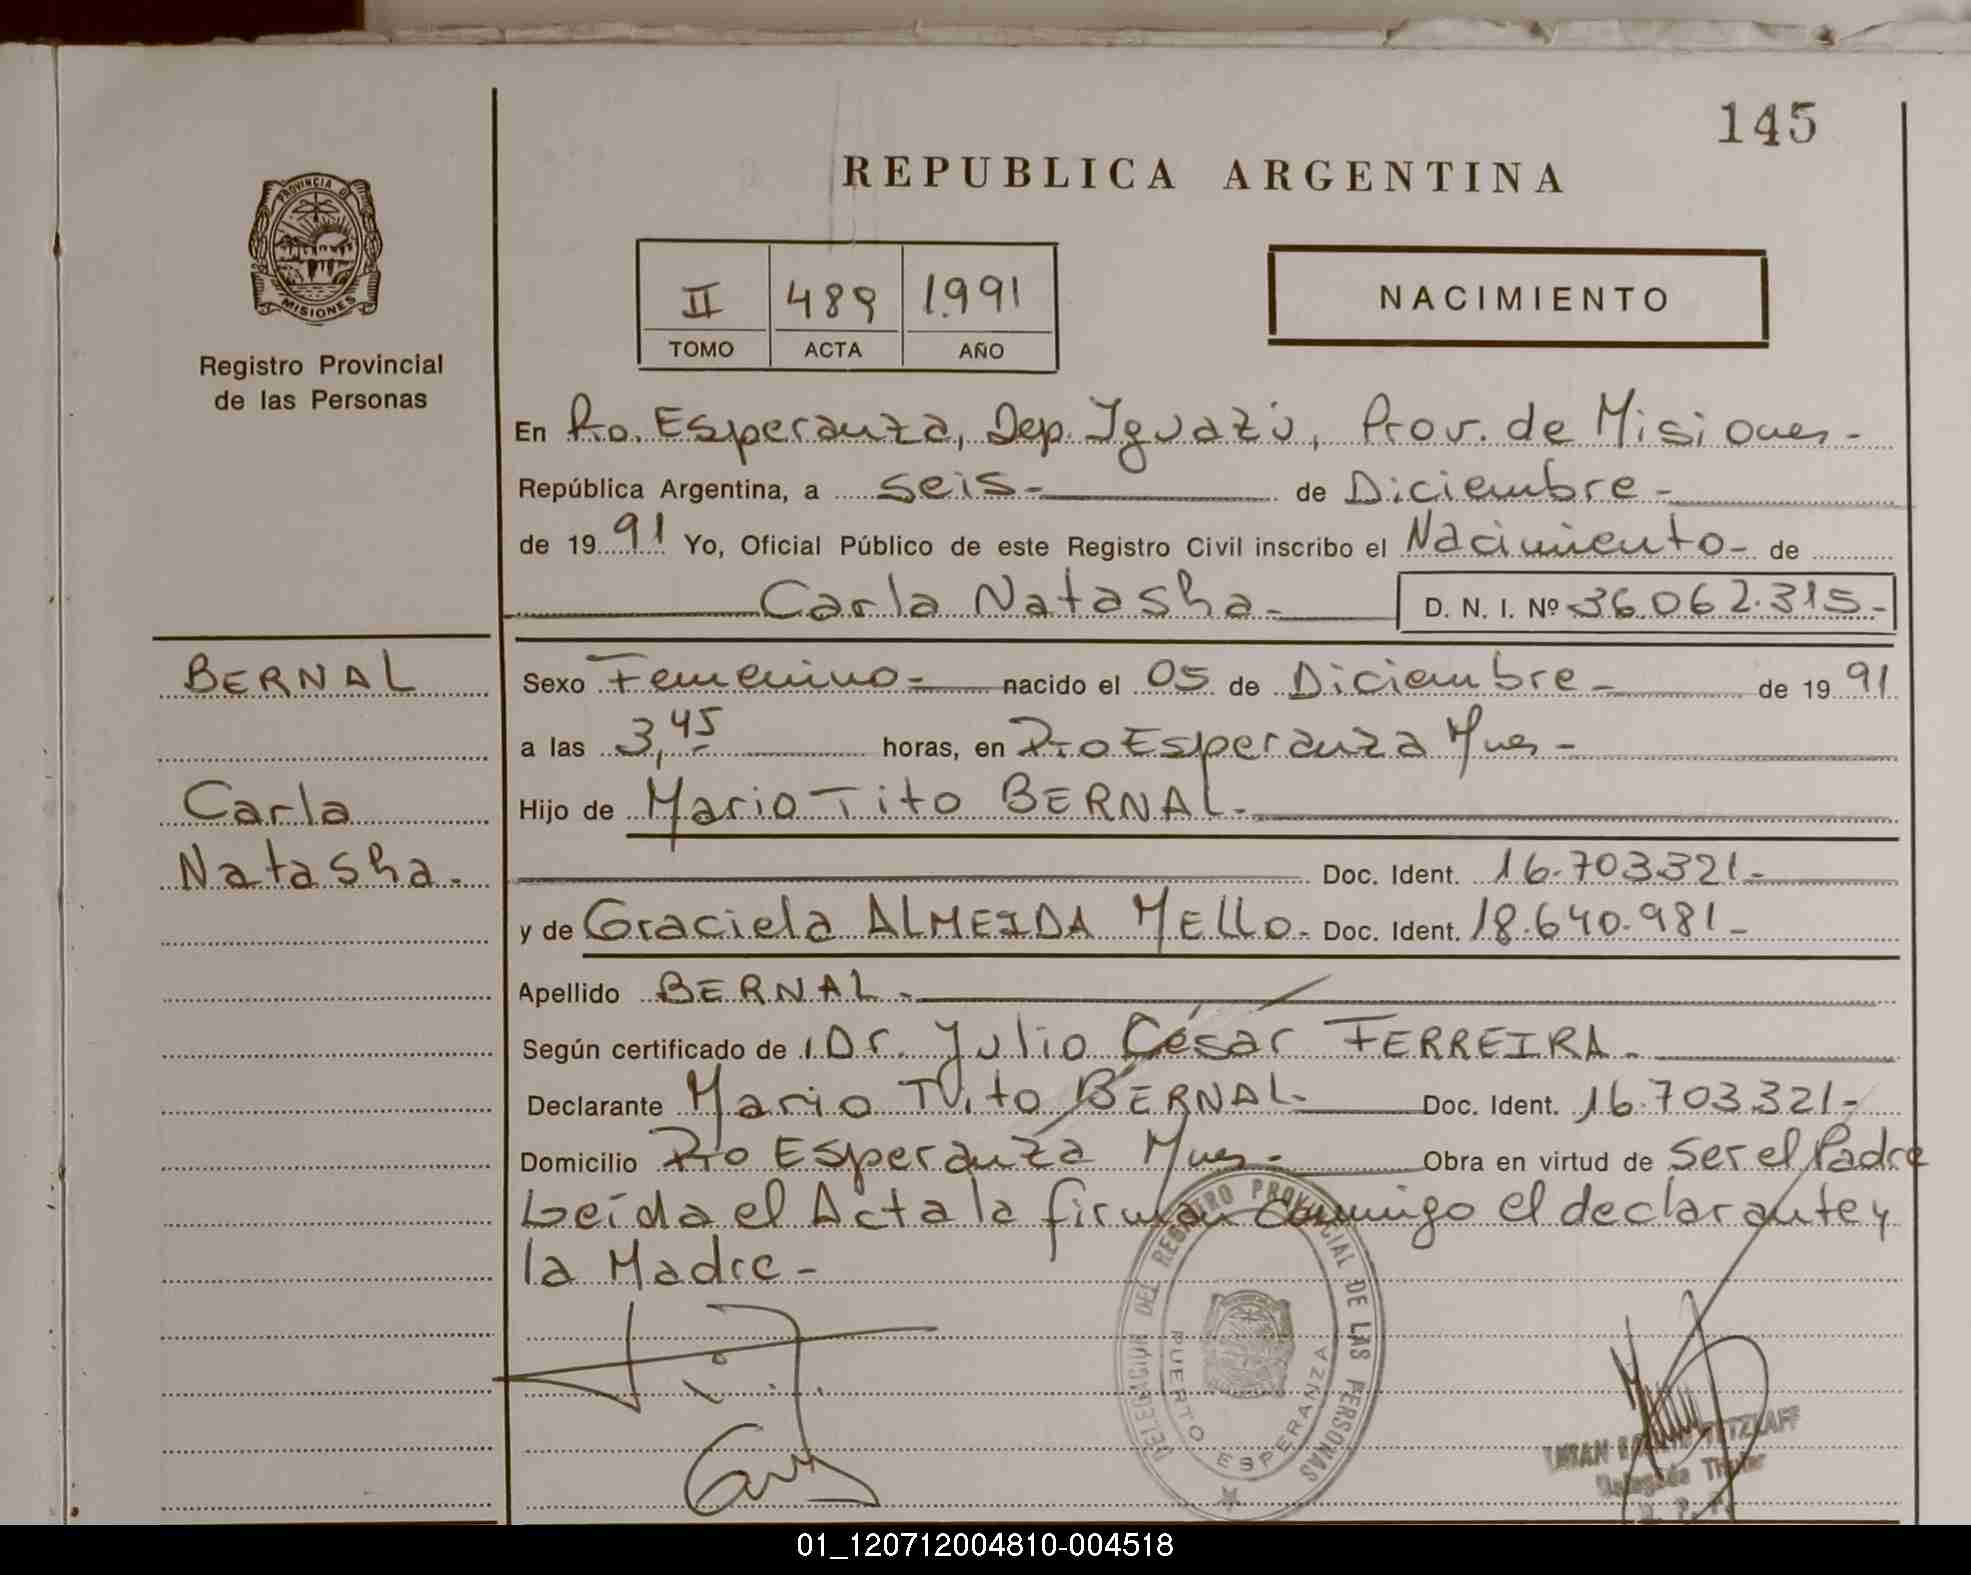 145
REPUBLICA ARGENTINA
PROVINCIA DE
MISIONES
Registro Provincial
de las Personas
II 489 1.991
TOMO ACTA AÑO
NACIMIENTO
En Pto. Esperanza, Dep. Iguazú, Prov. de Misiones-
República Argentina, a seis- de Diciembre-
de 1991 Yo, Oficial Público de este Registro Civil inscribo el Nacimiento- de
Carla Natasha- D. N. I. Nº 36.062.315-
BERNAL
Carla
Natasha.-
Sexo Femenino- nacido el 05 de Diciembre- de 1991
a las 3,45 horas, en Pto Esperanza Mnes-
Hijo de Mario Tito BERNAL-
Doc. Ident. 16.703.321-
y de Graciela ALMEIDA MELLO- Doc. Ident. 18.640.981-
Apellido BERNAL-
Según certificado de Dr. Julio César FERREIRA-
Declarante Mario Tito BERNAL- Doc. Ident. 16.703.321-
Domicilio Pto Esperanza Mnes- Obra en virtud de ser el Padre
Leída el Acta la firman conmigo el declarante y
la Madre-
DELEGACION DEL REGISTRO PROVINCIAL DE LAS PERSONAS
PUERTO ESPERANZA
Titular
01_120712004810-004518